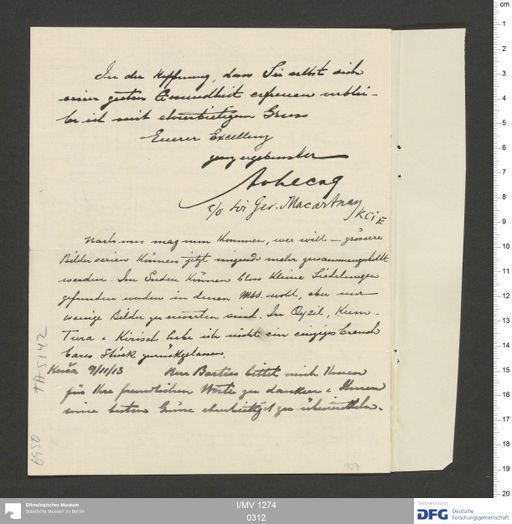 In der Hoffnung, dass Sie selbst sich
einer guten Gesundheit erfreuen verblei-
be ich mit ehrerbietigem Gruss
Euerer Excellenz
ganz ergebenster
AvLeCoq
c/o Sir Geo. Macartney
KCIE
Nach mir mag nun kommen, wer will – grössere
Bilderserien können jetzt nirgends mehr zusammengestellt
werden. Im Süden können bloss kleine Siedelungen
gefunden werden in denen Mss. wohl, aber nur
wenige Bilder zu erwarten sind. In Qyzil, Kum-
Tura & Kirisch habe ich nicht ein einziges brauch
bares Stück zurückgelassen.
Kuča 9/11/13 Herr Bartus bittet mich Ihnen
für Ihre freundlichen Worte zu danken & Ihnen
seine besten Grüsse ehrerbietigst zu übermitteln.
TA 5142
6950
I/MV 1274
0312
Ethnologisches Museum
Staatliche Museen zu Berlin
Gefördert durch
DFG Deutsche
Forschungsgemeinschaft
cm
1
2
3
4
5
6
7
8
9
10
11
12
13
14
15
16
17
18
19
20